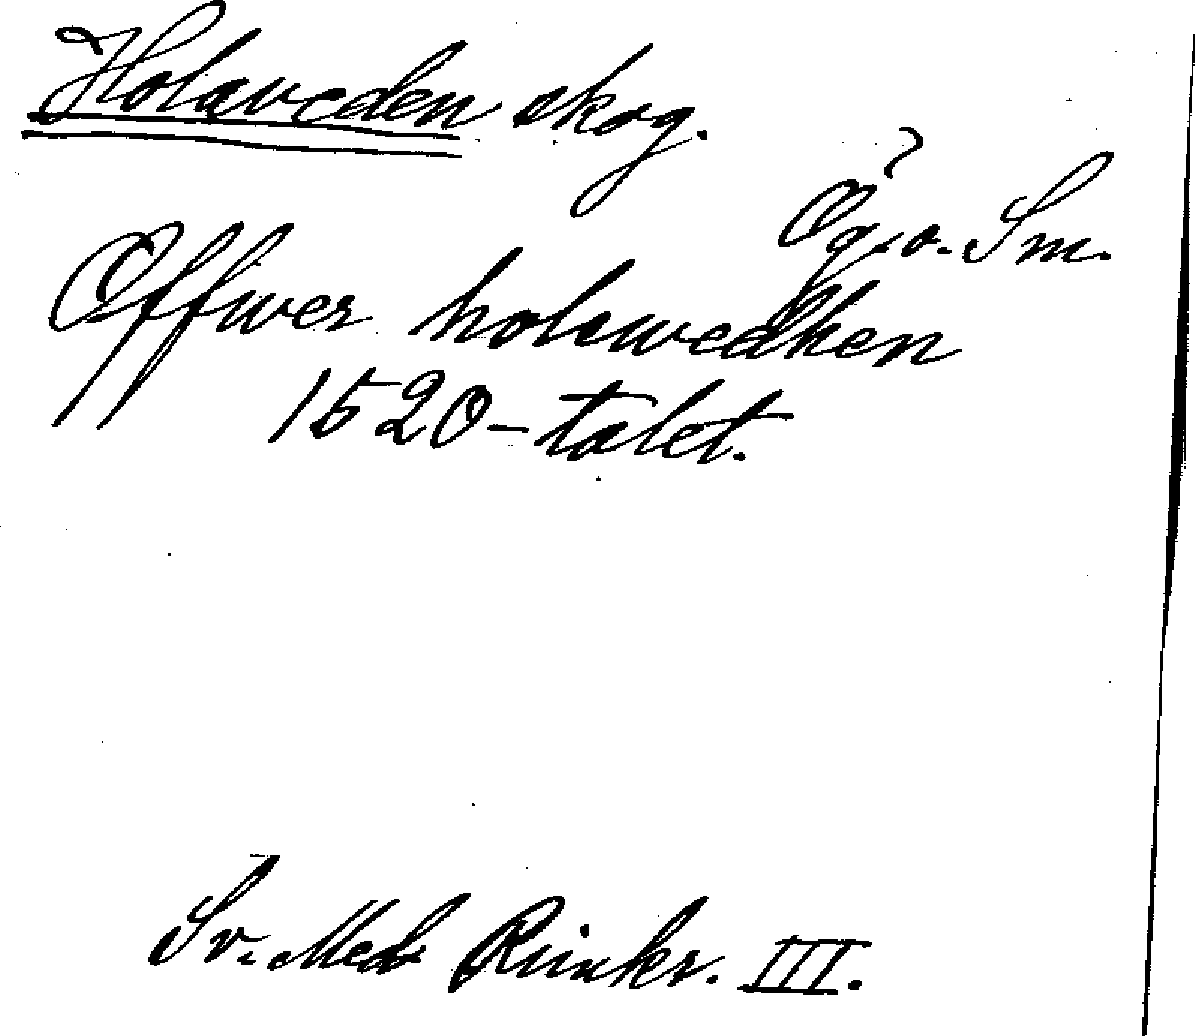 Holaveden skog.
Ög. o. Sm.
Offwer holawedhen
1520-talet.
Sv. Med. Rimkr. III.